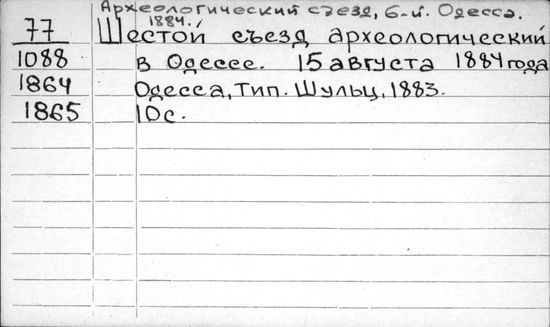 Археологический съезд, 6-й. Одесса.
1884.
77 Шестой съезд археологический
1088 в Одессе. 15 августа 1884 года
1864 Одесса, Тип. Шульц, 1883.
1865 10с.